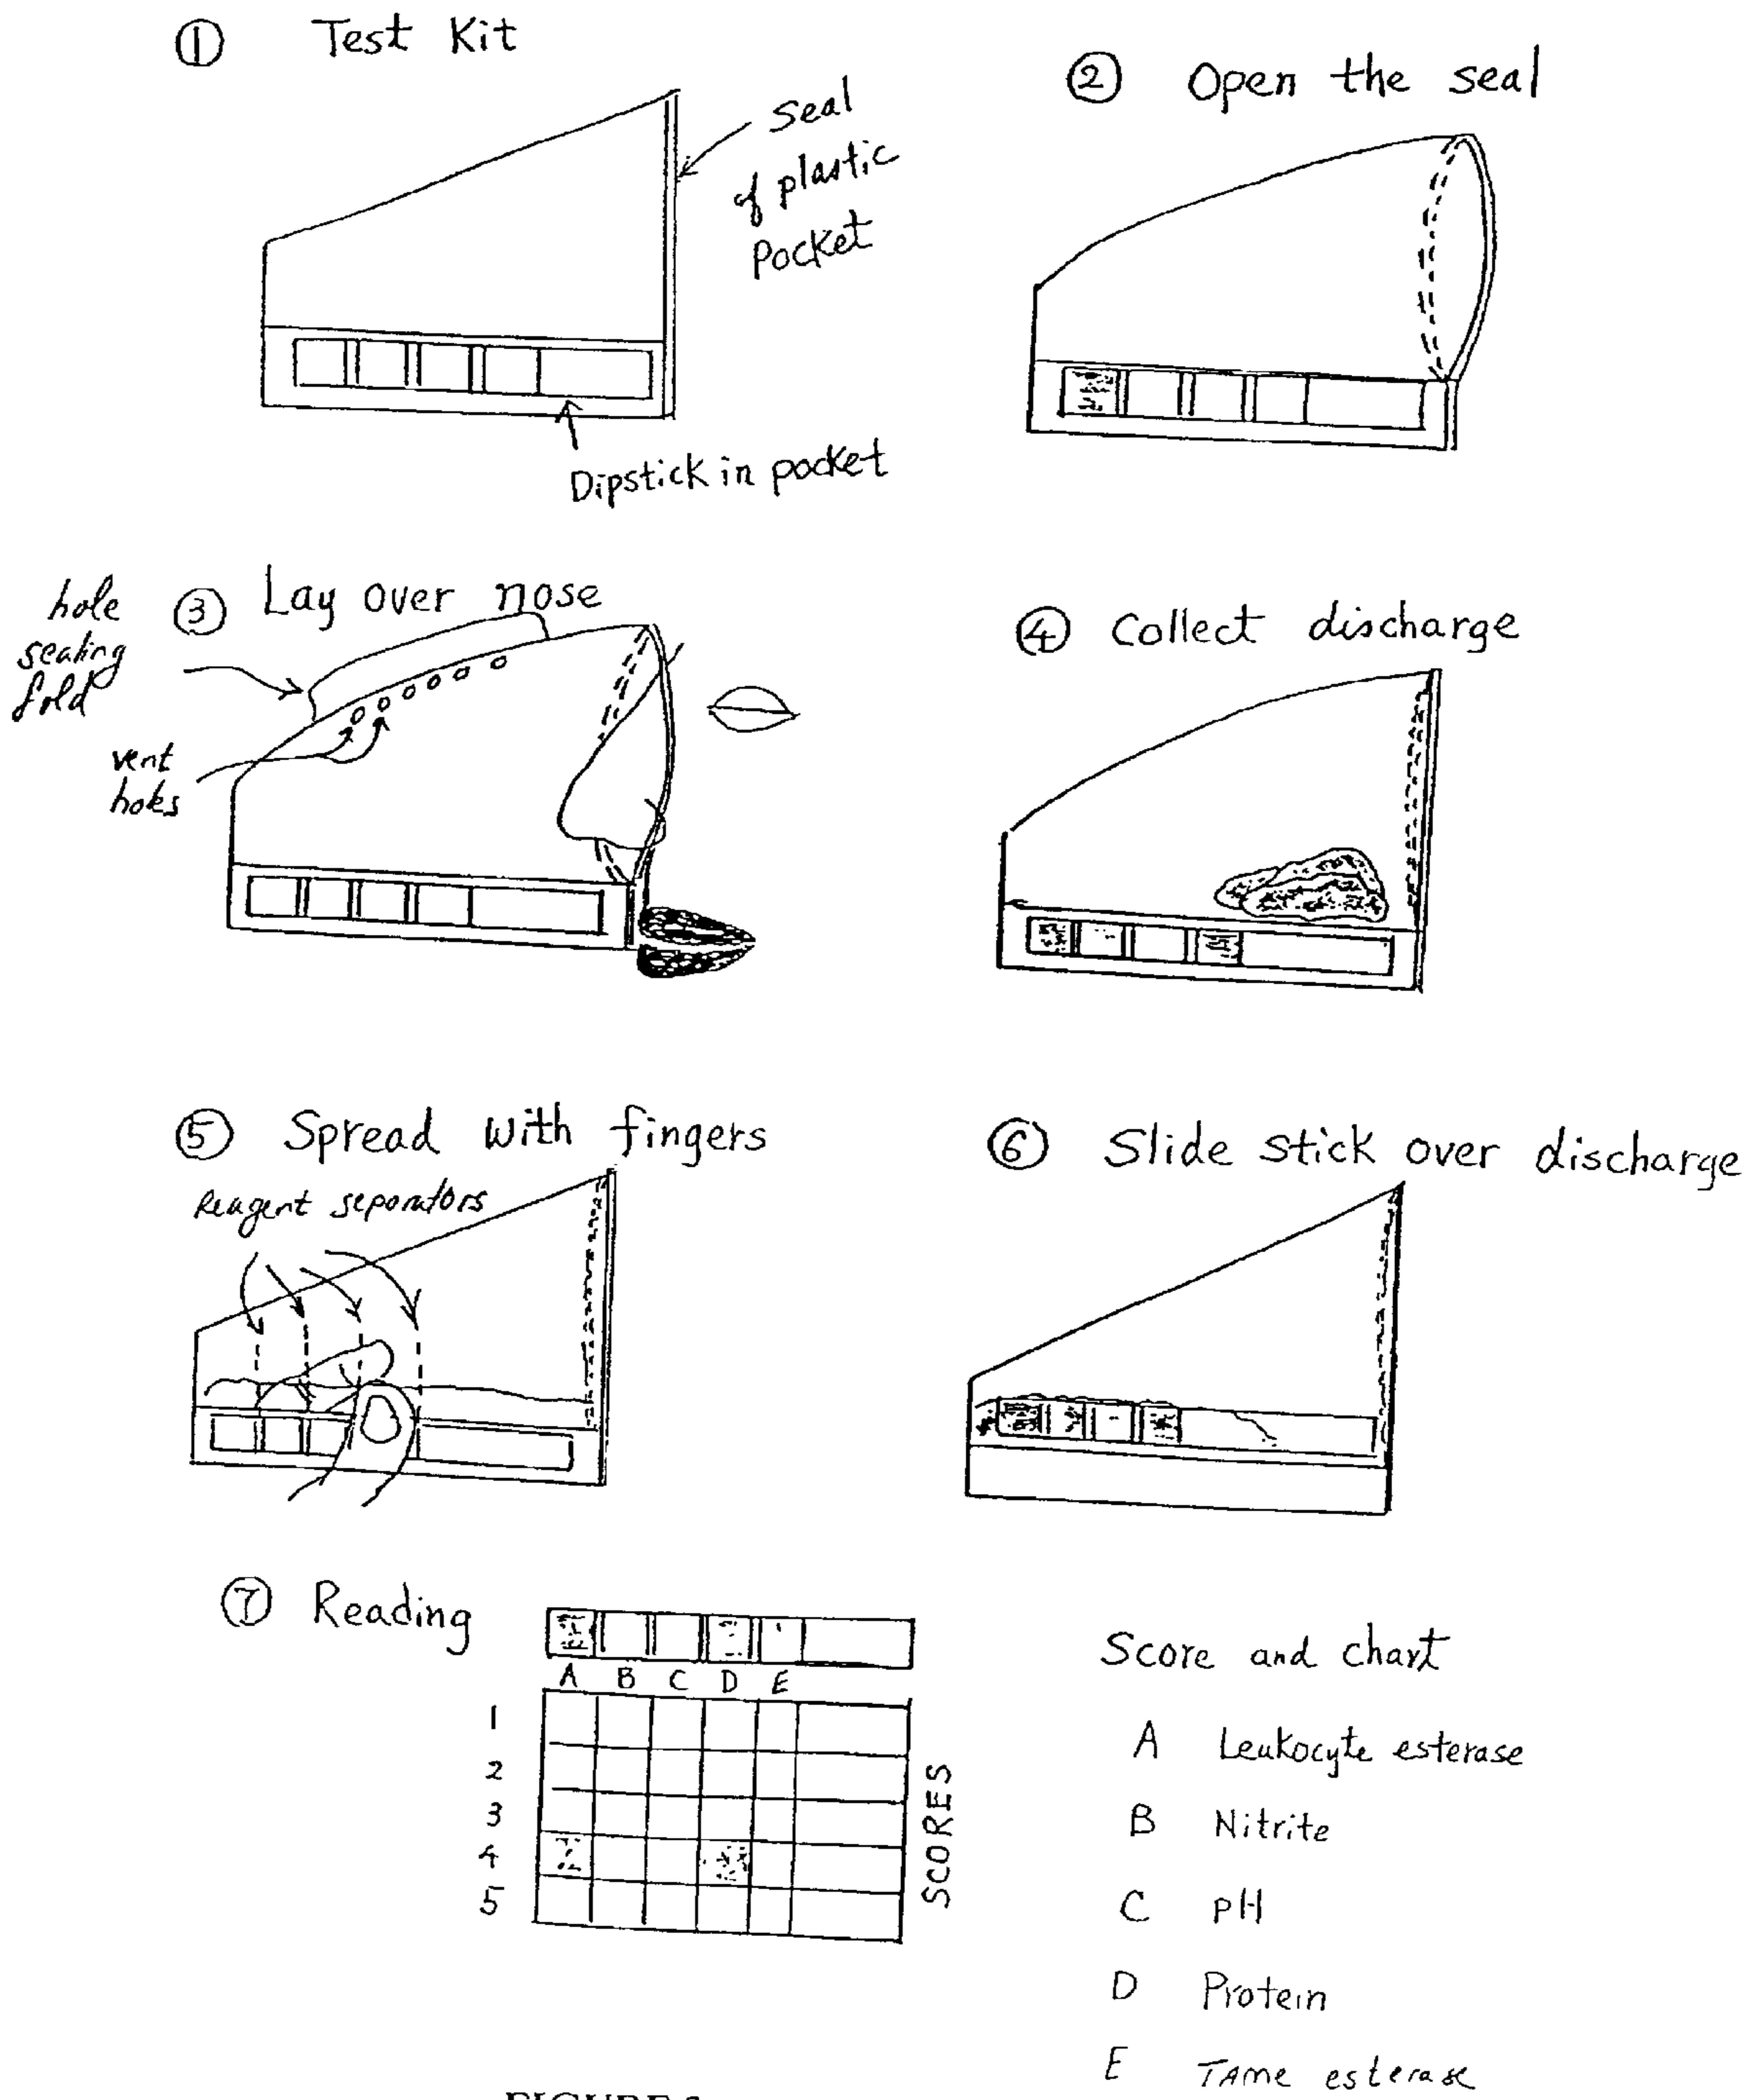 ① Test Kit
seal
of plastic
pocket
Dipstick in pocket
② Open the seal
③ Lay over nose
hole
sealing
fold
vent
holes
④ Collect discharge
⑤ Spread with fingers
Reagent separators
⑥ Slide stick over discharge
⑦ Reading
A B C D E
1
2
3
4
5
SCORES
Score and chart
A Leukocyte esterase
B Nitrite
C pH
D Protein
E TAme esterase